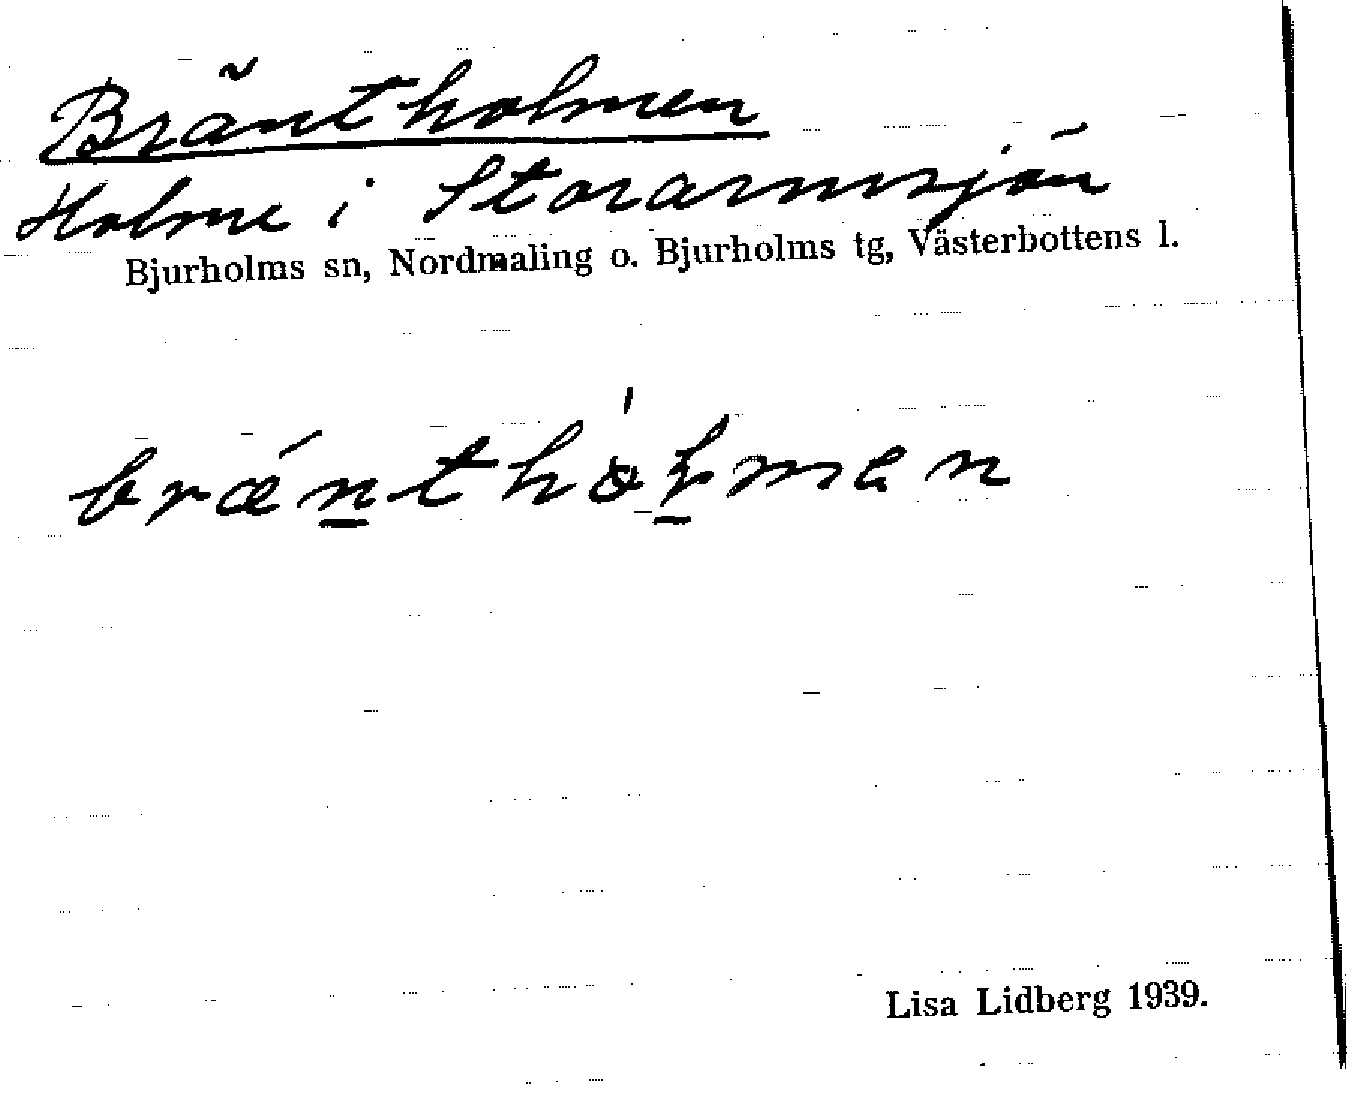 Bräntholmen
Holme i Stora­rmsjön
Bjurholms sn, Nordmaling o. Bjurholms tg, Västerbottens l.
brǽn̲thòl̲man
Lisa Lidberg 1939.